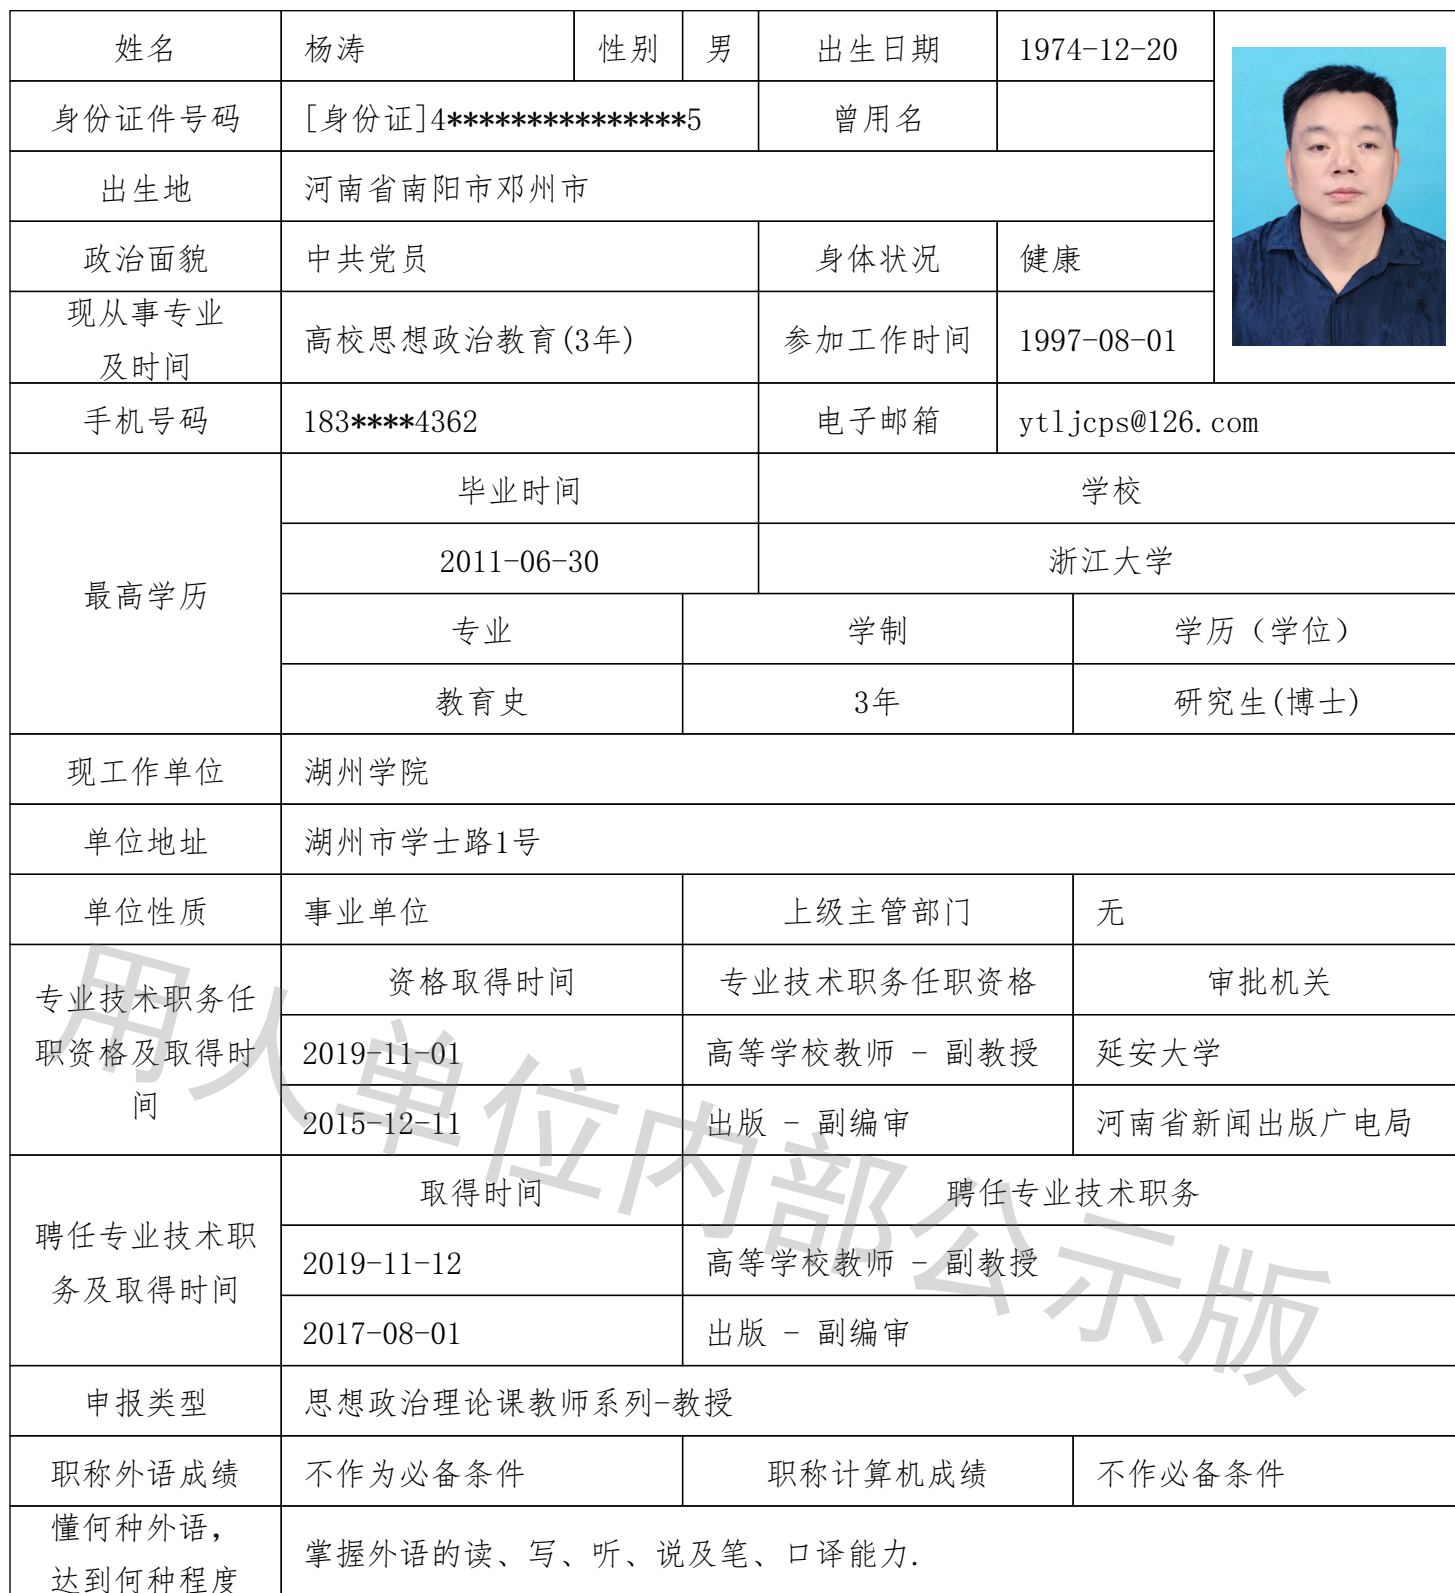 姓名 杨涛 性别 男 出生日期 1974-12-20
身份证件号码 [身份证]4***************5 曾用名
出生地 河南省南阳市邓州市
政治面貌 中共党员 身体状况 健康
现从事专业
及时间
高校思想政治教育(3年) 参加工作时间 1997-08-01
手机号码 183****4362 电子邮箱 ytljcps@126.com
最高学历
毕业时间 学校
2011-06-30 浙江大学
专业 学制 学历（学位）
教育史 3年 研究生(博士)
现工作单位 湖州学院
单位地址 湖州市学士路1号
单位性质 事业单位 上级主管部门 无
专业技术职务任
职资格及取得时
间
资格取得时间 专业技术职务任职资格 审批机关
2019-11-01 高等学校教师 - 副教授 延安大学
2015-12-11 出版 - 副编审 河南省新闻出版广电局
聘任专业技术职
务及取得时间
取得时间 聘任专业技术职务
2019-11-12 高等学校教师 - 副教授
2017-08-01 出版 - 副编审
申报类型 思想政治理论课教师系列-教授
职称外语成绩 不作为必备条件 职称计算机成绩 不作必备条件
懂何种外语，
达到何种程度
掌握外语的读、写、听、说及笔、口译能力.
用人单位内部公示版